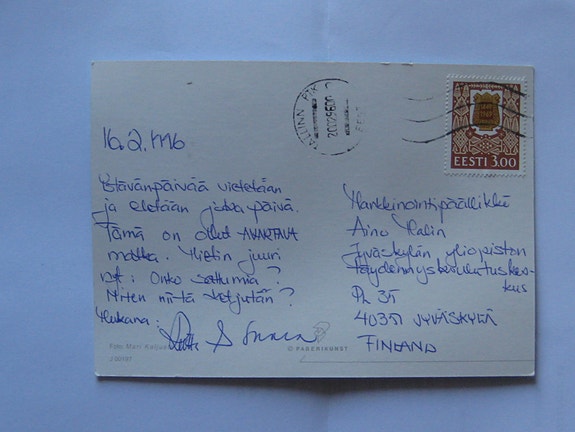 16.2.1996
Ystävänpäivää vietetään
ja eletään joka päivä.
Tämä on ollut AVARTAVA
matka: Mietin juuri
nyt: Onko sattumia?
Miten niitä ketjutän?
Mukana:
Foto: Mari Kaljuste
© PAKERIKUNST
TALLINN
EESTI 3.00
Markkinointipäällikkö
Aino Malin
Jyväskylän yliopiston
täydennyskoulutuskes-
kus
PL 35
40351 JYVÄSKYLÄ
FINLAND